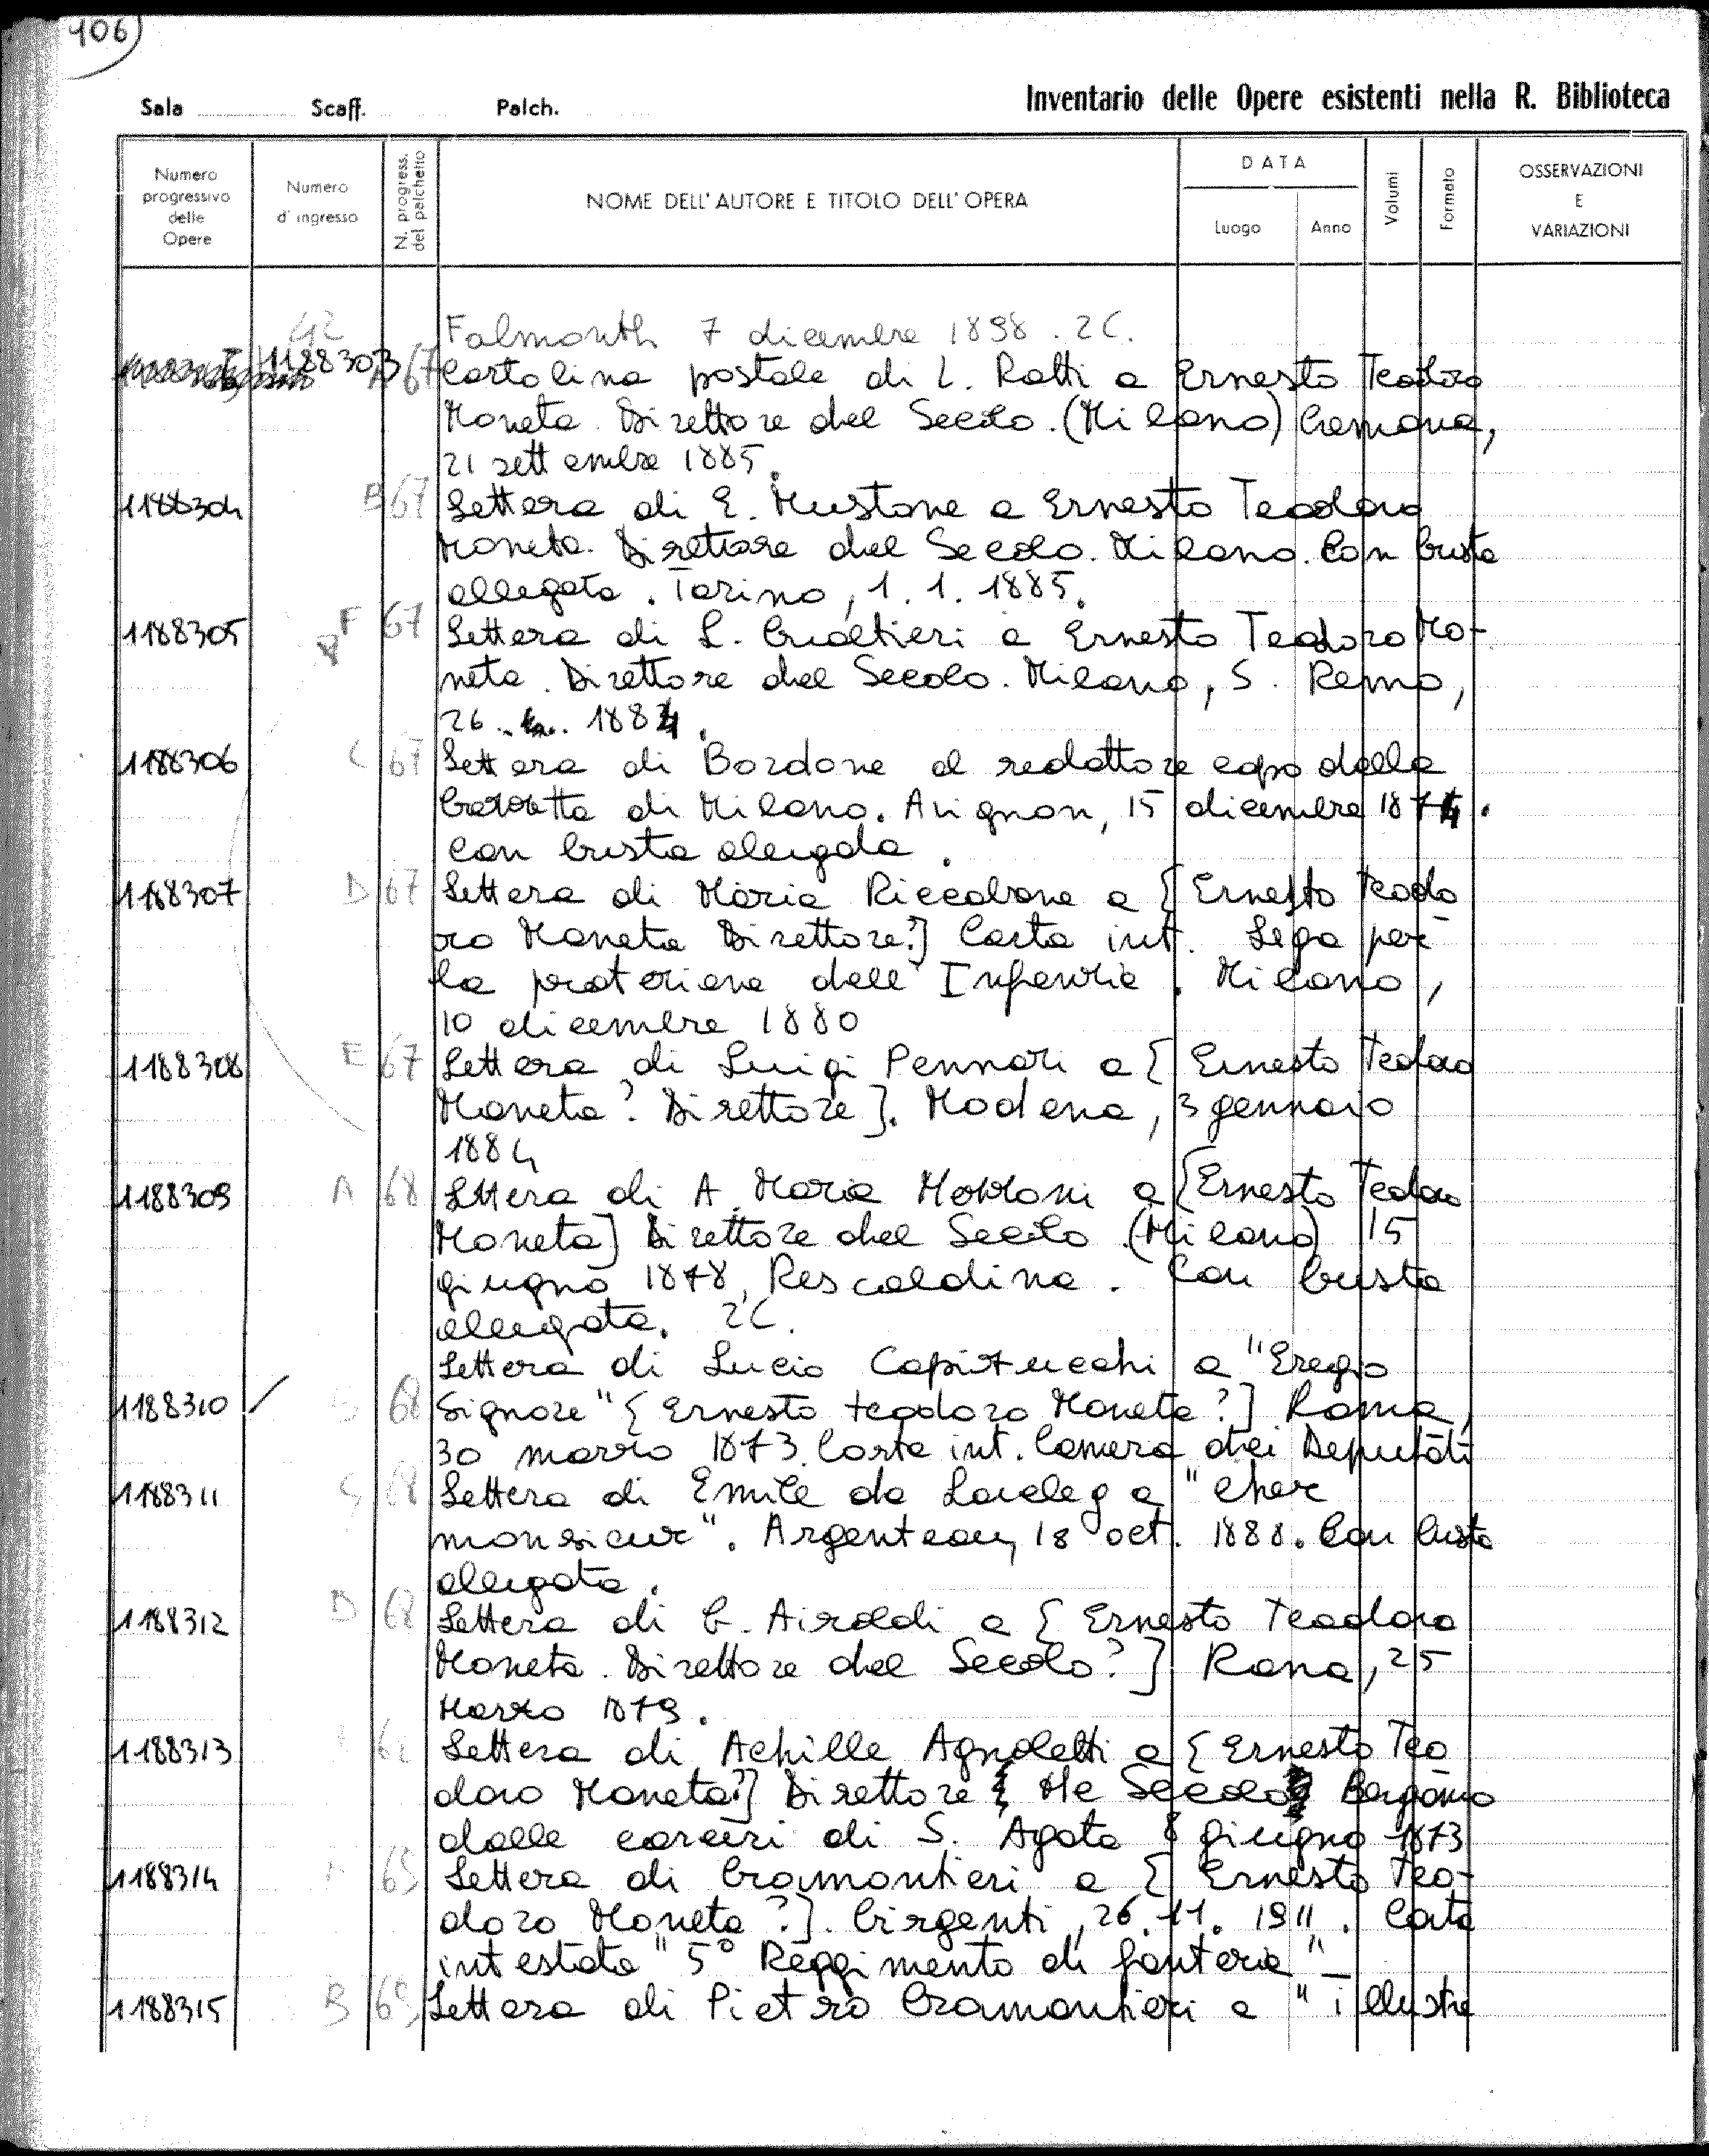 106
Sala Scaff. Palch. Inventario delle Opere esistenti nella R. Biblioteca
Numero progressivo delle Opere
Numero d'ingresso
N. progress. del palchetto
NOME DELL'AUTORE E TITOLO DELL'OPERA
DATA
Luogo
Anno
Volumi
Formato
OSSERVAZIONI E VARIAZIONI
42 Falmouth 7 dicembre 1898. 2C.
1188303 A 67 Cartolina postale di L. Ratti a Ernesto Teodoro
Moneta. Direttore del Secolo. (Milano) Cremona,
21 settembre 1885.
1188304 B 67 Lettera di E. Mustone a Ernesto Teodoro
Moneta. Direttore del Secolo. Milano. Con busta
allegata. Torino, 1.1.1885.
1188305 F 67 Lettera di L. Gualtieri a Ernesto Teodoro Mo-
neta. Direttore del Secolo. Milano, S. Remo,
26 1884.
1188306 C 67 Lettera di Bordone al redattore capo della
Gazzetta di Milano. Avignon, 15 dicembre 1874.
Con busta allegata.
1188307 D 67 Lettera di Maria Riccabone a [Ernesto Teodo
ro Moneta Direttore?] Carta int. Lega per
la protezione dell'Infanzia. Milano,
10 dicembre 1880
1188308 E 67 Lettera di Luigi Pennari a [Ernesto Teodoro
Moneta? Direttore]. Modena, 3 gennaio
1884
1188309 A 68 Lettera di A. Maria Mozzoni a [Ernesto Teodoro
Moneta] Direttore del Secolo (Milano) 15
giugno 1878, Rescaldina. Con busta
allegata. 2C.
Lettera di Lucio Capitucchi a "Eregio
1188310 B 68 Signore" [Ernesto Teodoro Moneta?] Roma,
30 marzo 1873. Carta int. Camera dei Deputati
1188311 C 68 Lettera di Emile de Laveleg a "cher
monsieur". Argenteau, 18 oct. 1888. Con busta
allegata.
1188312 D 68 Lettera di G. Airoldi a [Ernesto Teodoro
Moneta. Direttore del Secolo?] Roma, 25
Marzo 1879.
1188313 68 Lettera di Achille Agnoletti a [Ernesto Teo
doro Moneta?] Direttore Secolo Bergamo
dalle carceri di S. Agata 8 giugno 1873
1188314 A 69 Lettera di Gramontieri a [Ernesto Teo-
doro Moneta?]. Girgenti, 26.11.1911. Carta
intestata "5° Reggimento di fanteria"
1188315 B 69 Lettera di Pietro Gramontieri a "illustre